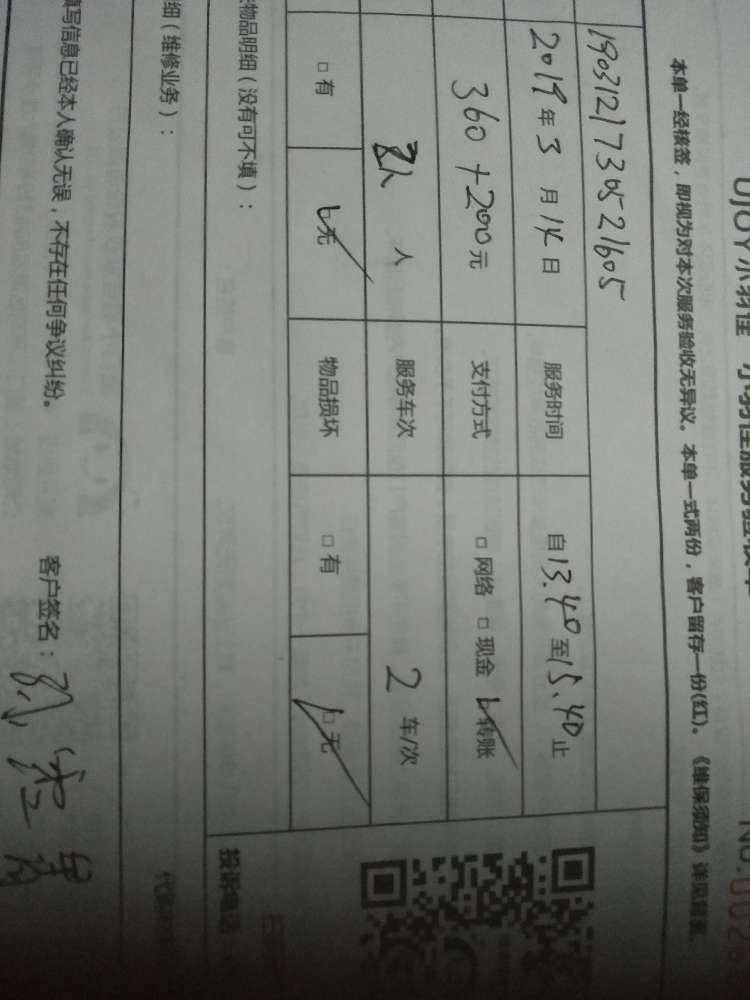 UJOY小羽佳 小羽佳服务验收单
本单一经核签，即视为对本次服务验收无异议。本单一式两份，客户留存一份(红)。《维保须知》详见背面。
1903121730521605
2019年3月14日 服务时间 自13.40至15.40止
360+200元 支付方式 □网络 □现金 □转账
人 服务车次 2车/次
□有 □无 物品损坏 □有 □无
物品明细（没有可不填）： 投诉电话
细（维修业务）：
填写信息已经本人确认无误，不存在任何争议纠纷。 客户签名：